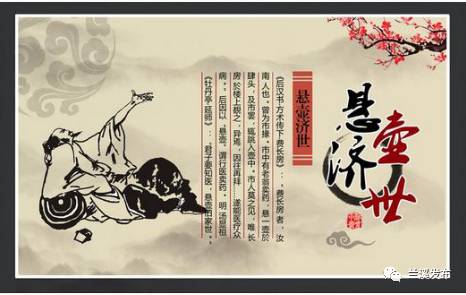 悬壶济世
悬壶济世
《后汉书·方术传下·费长房》:“费长房者,汝
南人也,曾为市掾。市中有老翁卖药,悬一壶於
肆头,及市罢,辄跳入壶中,市人莫之见,唯长
房於楼上睹之,异焉,因往再拜……遂能医疗众
病。”后因以“悬壶”谓行医卖药。明 汤显祖
《牡丹亭·延师》:“君子要知医,悬壶旧家世。”
兰溪发布